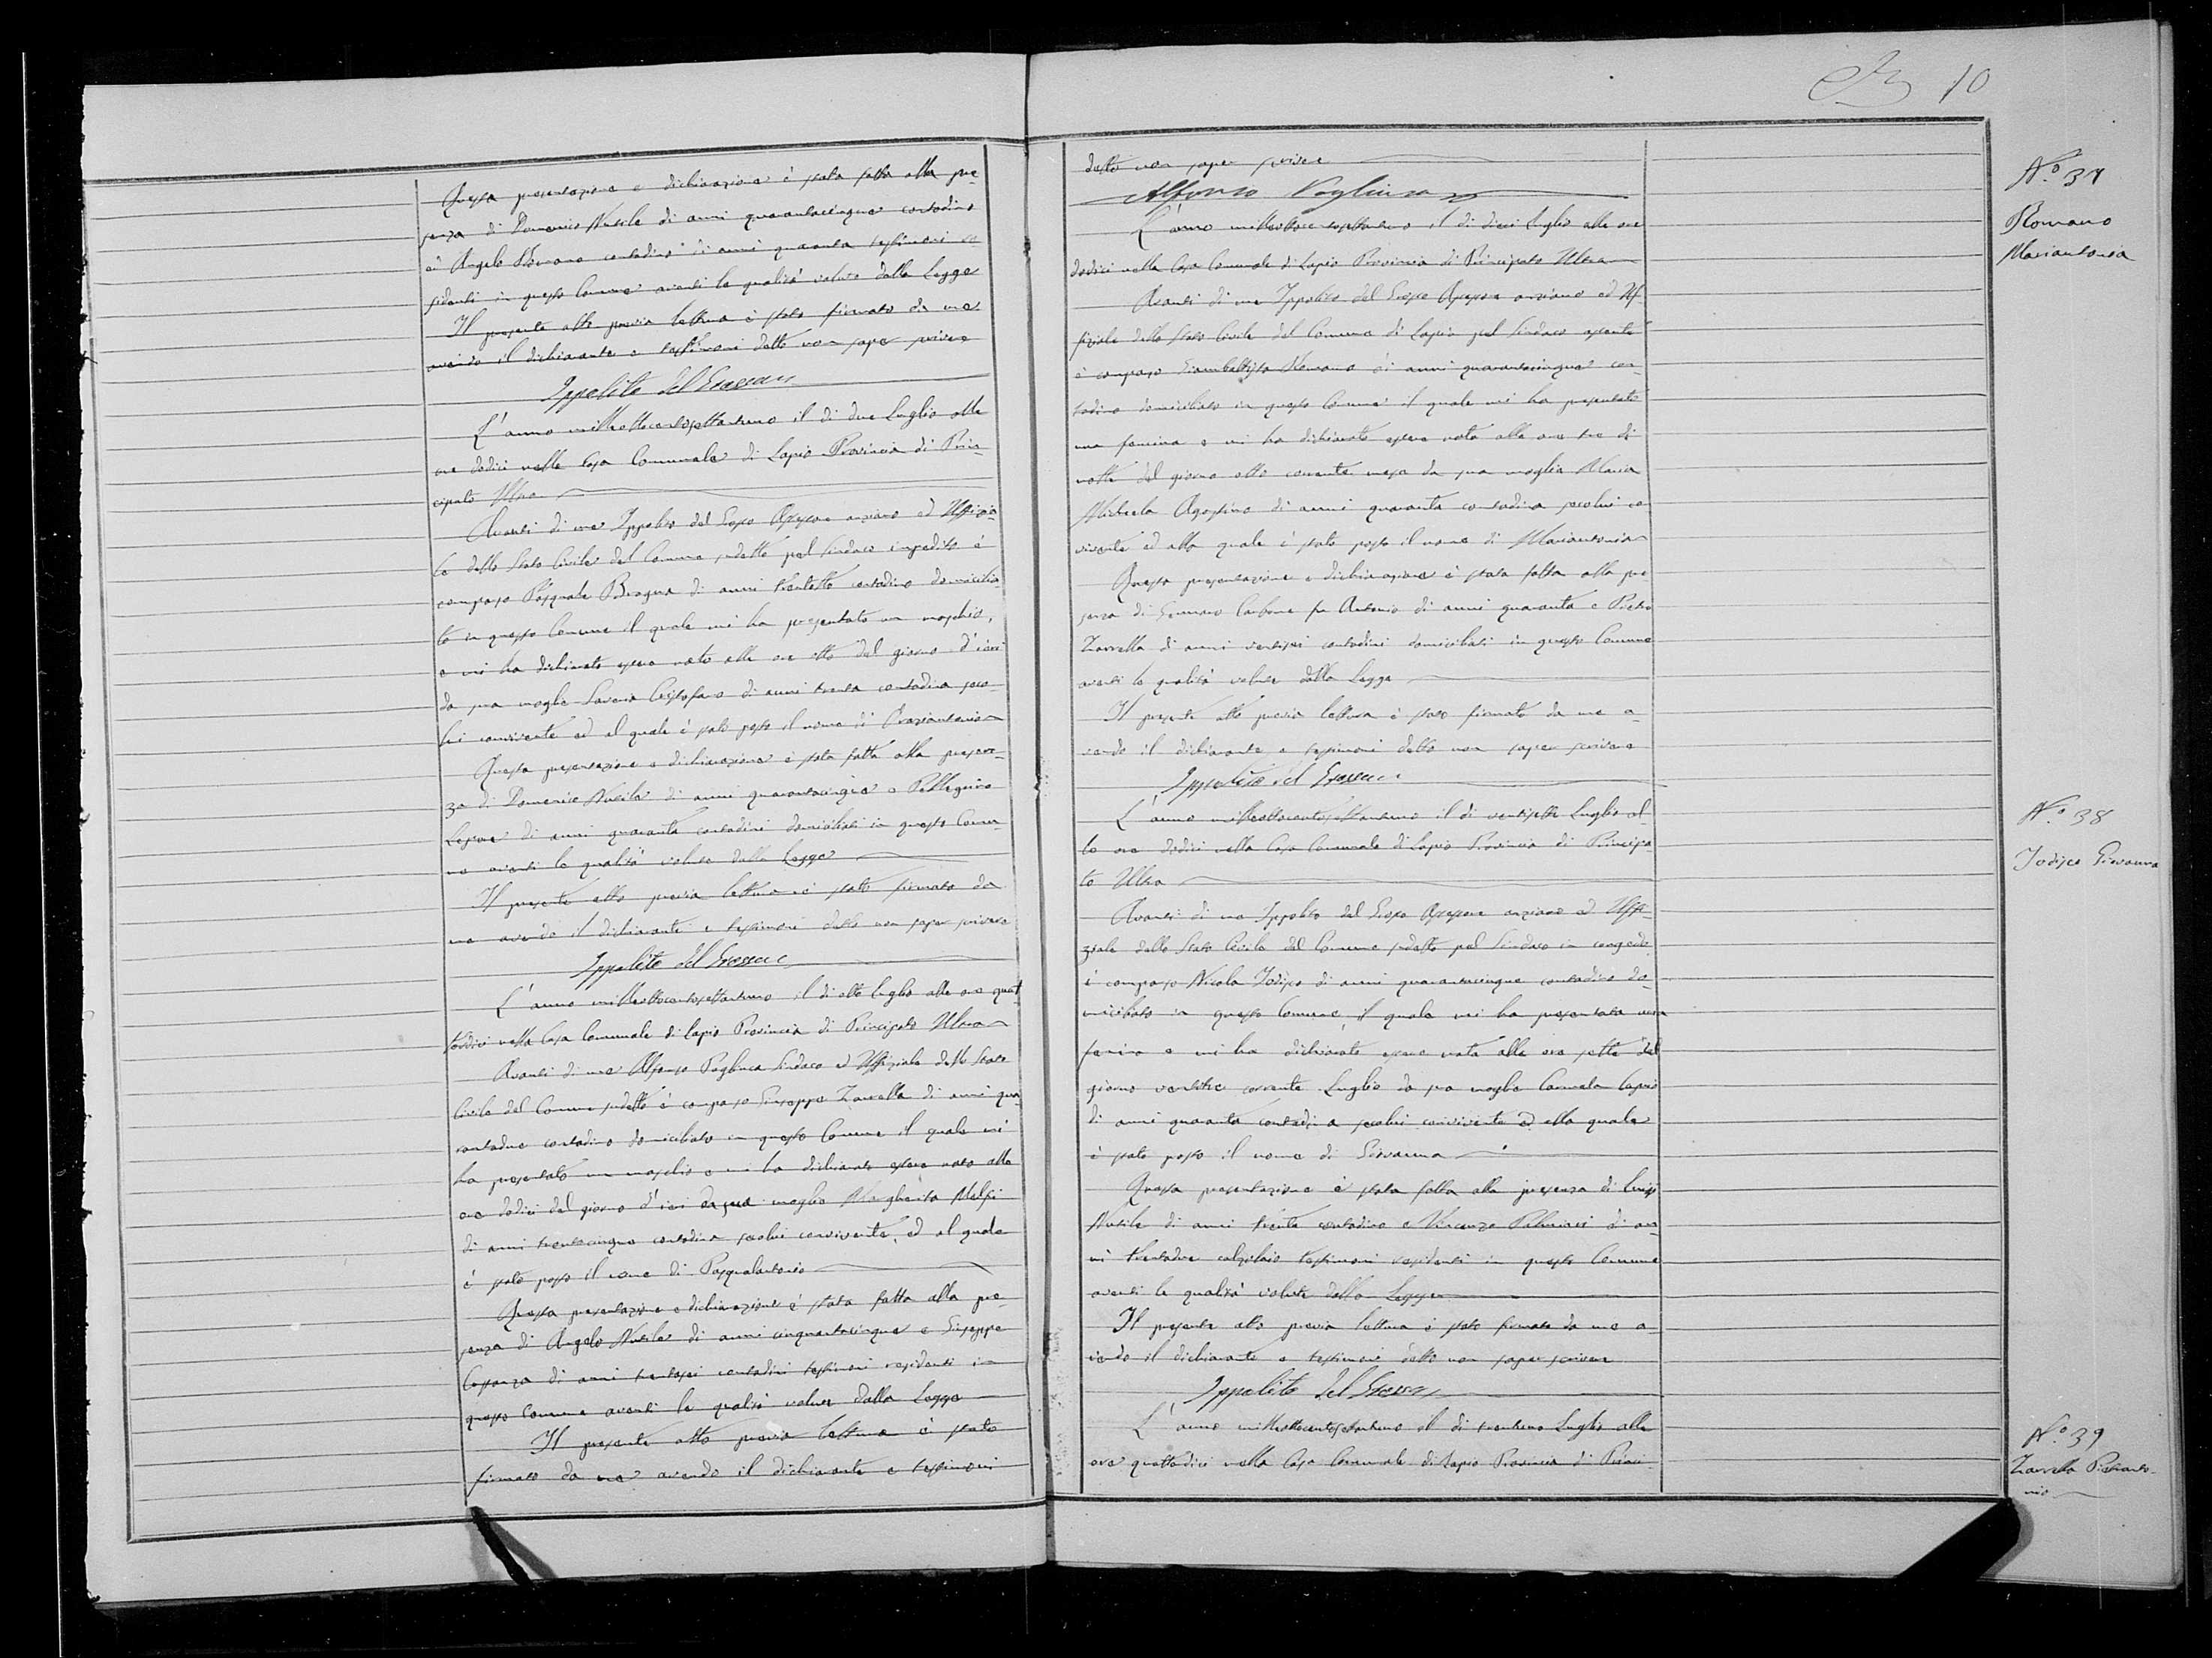 Questa presentazione e dichiarazione è stata fatta alla pre-
senza di Domenico Nutile di anni quarantacinque contadino
ed Angelo Romano contadino di anni quaranta testimoni re-
sidenti in questo Comune aventi le qualità volute dalla Legge
Il presente atto previa lettura è stato firmato da me
avendo il dichiarante e testimoni detto non saper scrivere
Ippolito del Grosso
L'anno milleottocentosettantuno il dì due Luglio alle
ore dodici nella Casa Comunale di Lapio Provincia di Prin-
cipato Ultra
Avanti di me Ippolito del Grosso Assessore anziano ed Uffizia-
le dello Stato Civile del Comune sudetto pel Sindaco impedito è
comparso Pasquale Biogna di anni trentotto contadino domicilia-
to in questo Comune il quale mi ha presentato un maschio,
e mi ha dichiarato essere nato alle ore otto del giorno d'ieri
da sua moglie Saveria Cristofaro di anni trenta contadina seco-
lui convivente ed al quale è stato posto il nome di Oraziantonio
Questa presentazione e dichiarazione è stata fatta alla presen-
za di Domenico Nutile di anni quarantacinque e Pellegrino
di anni quaranta contadini domiciliati in questo Comu-
ne aventi le qualità volute dalla Legge
Il presente atto previa lettura è stato firmato da
me avendo il dichiarante e testimoni detto non saper scrivere
Ippolito del Grosso
L'anno milleottocentosettantuno il dì otto luglio alle ore quat-
tordici nella Casa Comunale di Lapio Provincia di Principato Ultra
Avanti di me Alfonso Vagliuca Sindaco ed Uffiziale dello Stato
Civile del Comune sudetto è comparso Giuseppe Zarrella di anni qua-
rantadue contadino domiciliato in questo Comune il quale mi
ha presentato un maschio e mi ha dichiarato essere nato alle
ore dodici del giorno d'ieri da sua moglie Margherita Melfi
di anni trentacinque contadina secolui convivente, ed al quale
è stato posto il nome di Pasqualantonio
Questa presentazione e dichiarazione è stata fatta alla pre-
senza di Angelo Nutile di anni cinquantacinque e Giuseppe
Costanza di anni trentasei contadini testimoni residenti in
questo Comune aventi le qualità volute dalla Legge
Il presente atto previa lettura è stato
firmato da me avendo il dichiarante e testimoni
10
detto non saper scrivere
Alfonso Vagliuca
N.º 37
Romano
Mariantonia
L'anno milleottocentosettantuno il dì dieci Luglio alle ore
dodici nella Casa Comunale di Lapio Provincia di Principato Ultra
Avanti di me Ippolito del Grosso Assessore anziano ed Uf-
fiziale dello Stato Civile del Comune di Lapio pel Sindaco assente
è comparso Giambattista Romano di anni quarantacinque con-
tadino domiciliato in questo Comune il quale mi ha presentato
una femina e mi ha dichiarato essere nata alle ore tre di
notte del giorno otto corrente mese da sua moglie Maria
Michela Agostino di anni quaranta contadina secolui con-
vivente ed alla quale è stato posto il nome di Mariantonia
Questa presentazione e dichiarazione è stata fatta alla pre
senza di Gennaro Carbone fu Antonio di anni quaranta e Pietro
Zarrella di anni ventisei contadini domiciliati in questo Comune
aventi le qualità volute dalla Legge
Il presente atto previa lettura è stato firmato da me a-
vendo il dichiarante e testimoni detto non saper scrivere
Ippolito del Grosso
N.º 38
Jodice Giovanna
L'anno milleottocentosettantuno il dì ventisette Luglio al-
le ore dodici nella Casa Comunale di Lapio Provincia di Principa
to Ultra
Avanti di me Ippolito del Grosso Assessore anziano ed Uffi-
ziale dello Stato Civile del Comune sudetto pel Sindaco in congedo
è comparso Nicola Jodice di anni quarantacinque contadino do-
miciliato in questo Comune, il quale mi ha presentata una
femina e mi ha dichiarato essere nata alle ore sette del
giorno ventitre corrente Luglio da sua moglie Carmela
di anni quaranta contadina secolui convivente ed alla quale
è stato posto il nome di Giovanna
Questa presentazione è stata fatta alla presenza di Luigi
Nutile di anni trenta contadino e Vincenzo di an-
ni trentadue calzolaio testimoni residenti in questo Comune
aventi le qualità volute dalla Legge
Il presente atto previa lettura è stato firmato da me a-
vendo il dichiarante e testimoni detto non saper scrivere
Ippolito del Grosso
N.º 39
Zarrella Pietranto-
nio
L'anno milleottocentosettantuno il dì trentuno Luglio alle
ore quattordici nella Casa Comunale di Lapio Provincia di Princi-